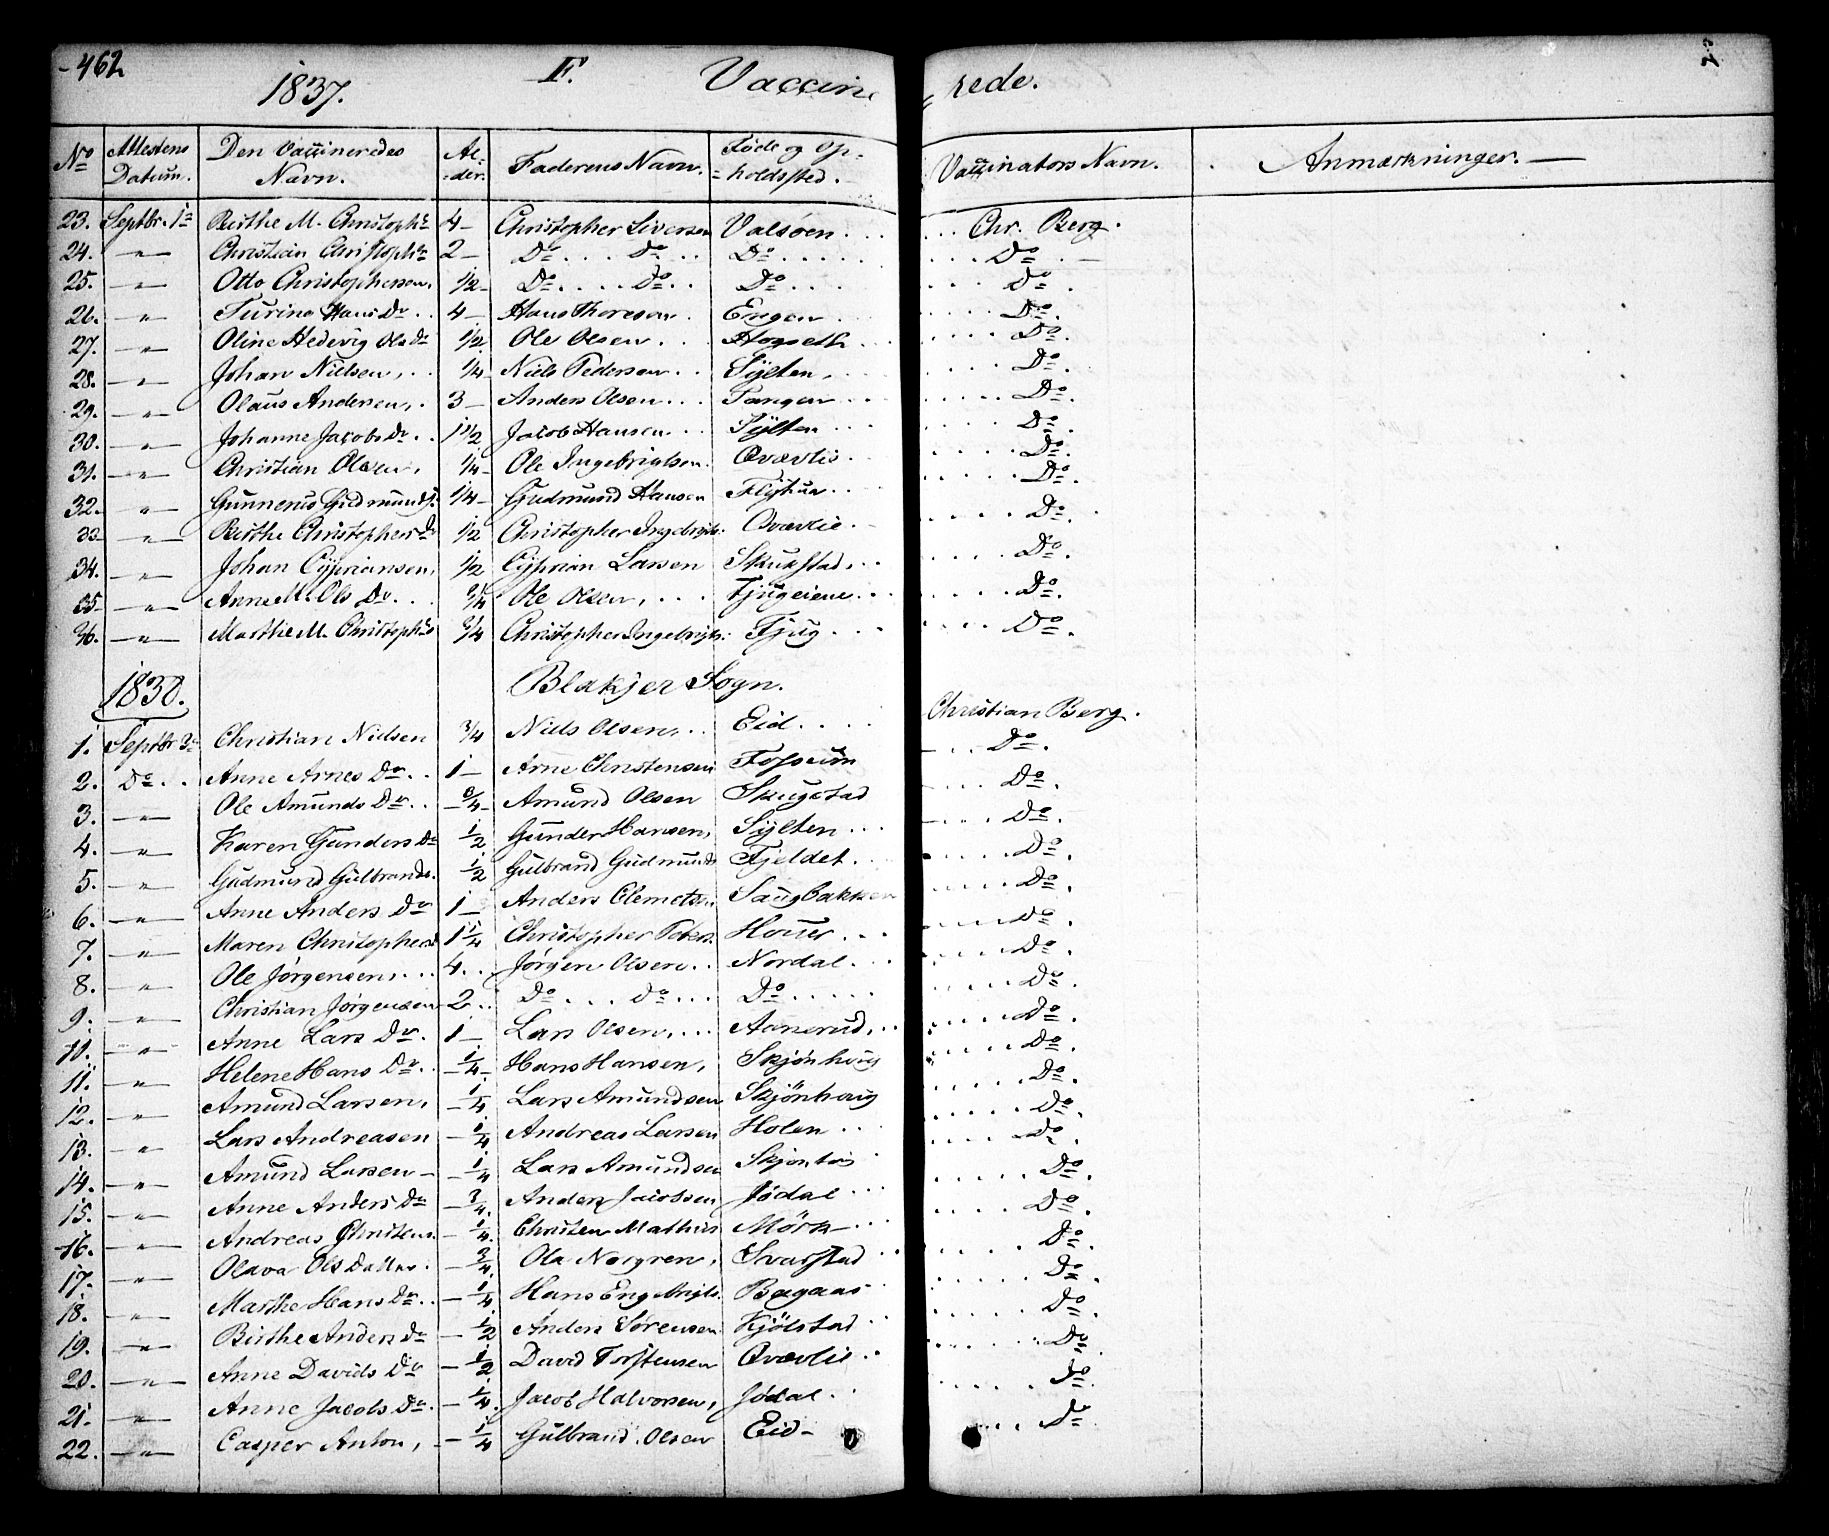 462
1837. F. Vaccinerede.
No Attestens Datum. Den Vaccineredes Navn. Alder. Faderens Navn. Føde og Opholdssted. Vaccinators Navn. Anmærkninger.
23. Septbr. 1ste Birthe M. Christophs 4 Christopher Siversen Valsøen Chr. Berg.
24. " Christian Christophs 2 Do Do Do Do
25. " Otto Christophersen 1/2 Do Do Do Do
26. " Turine Hans Dr 4 Hans Thoresen Engen Do
27. " Oline Hedevig Ols Dr 1/2 Ole Olsen Hogseth Do
28. " Johan Nielsen 1/4 Niels Pedersen Sylten Do
29. " Olaus Andersen 3 Anders Olsen Tangen Do
30. " Johanne Jacobs Dr 1 1/2 Jacob Hansen Sylten Do
31. " Christian Olsen 1/4 Ole Ingebrigtsen Qvævlie Do
32. " Gunnerus Gudmunds. 1/4 Gudmund Hansen Do
33. " Birthe Christophers Dr 1/2 Christopher Ingebrigts. Qvævlie Do
34. " Johan Cypriansen 1/2 Cyprian Larsen Skukstad Do
35. " Anne M. Ols Dr 3/4 Ole Olsen Fjugeiene Do
36. " Marthe M. Christophs 3/4 Christopher Ingebrigts. Fjug Do
1838. Blakjer Sogn.
1. Septbr 3 Christian Nielsen 3/4 Niels Olsen Eid Christian Berg.
2. Do Anne Arnes Dr 1 Arne Christensen Fossum Do
3. " Ole Amunds Dr 3/4 Amund Olsen Skugstad Do
4. " Karen Gunders Dr 1/2 Gunder Hansen Sylten Do
5. " Gudmund Gulbrands. 1/2 Gulbrand Gudmunds Fjeldet Do
6. " Anne Anders Dr 1 Anders Clemetsen Saugbakken Do
7. " Maren Christophers 1 1/4 Christopher Peders. Houer Do
8. " Ole Jørgensen 4 Jørgen Olsen Nordal Do
9. " Christian Jørgensen 2 Do Do Do Do
10. " Anne Lars Dr 1 Lars Olsen Aanerud Do
11. " Helene Hans Dr 1/4 Hans Hansen Skjønhaug Do
12. " Amund Larsen 1/4 Lars Amundsen Skjønhaug Do
13. " Lars Andreasen 1/4 Andreas Larsen Holen Do
14. " Amund Larsen 1/4 Lars Amundsen Do
15. " Anne Anders Dr 3/4 Anders Jacobsen Jødal Do
16. " Andreas Christens. 1/4 Christen Mathis Mörk Do
17. " Olava Ols Datter 3/4 Ola Norgren Svarstad Do
18. " Marthe Hans Dr 1/4 Hans Engebrigts. Bagaas Do
19. " Birthe Anders Dr 1/2 Anders Sørensen Kjölstad Do
20. " Anne Davids Dr 1/2 David Torstensen Qvævlie Do
21. " Anne Jacobs Dr 1/4 Jacob Halvorsen Jødal Do
22. " Casper Anton 1/4 Gulbrand Olsen Eid Do